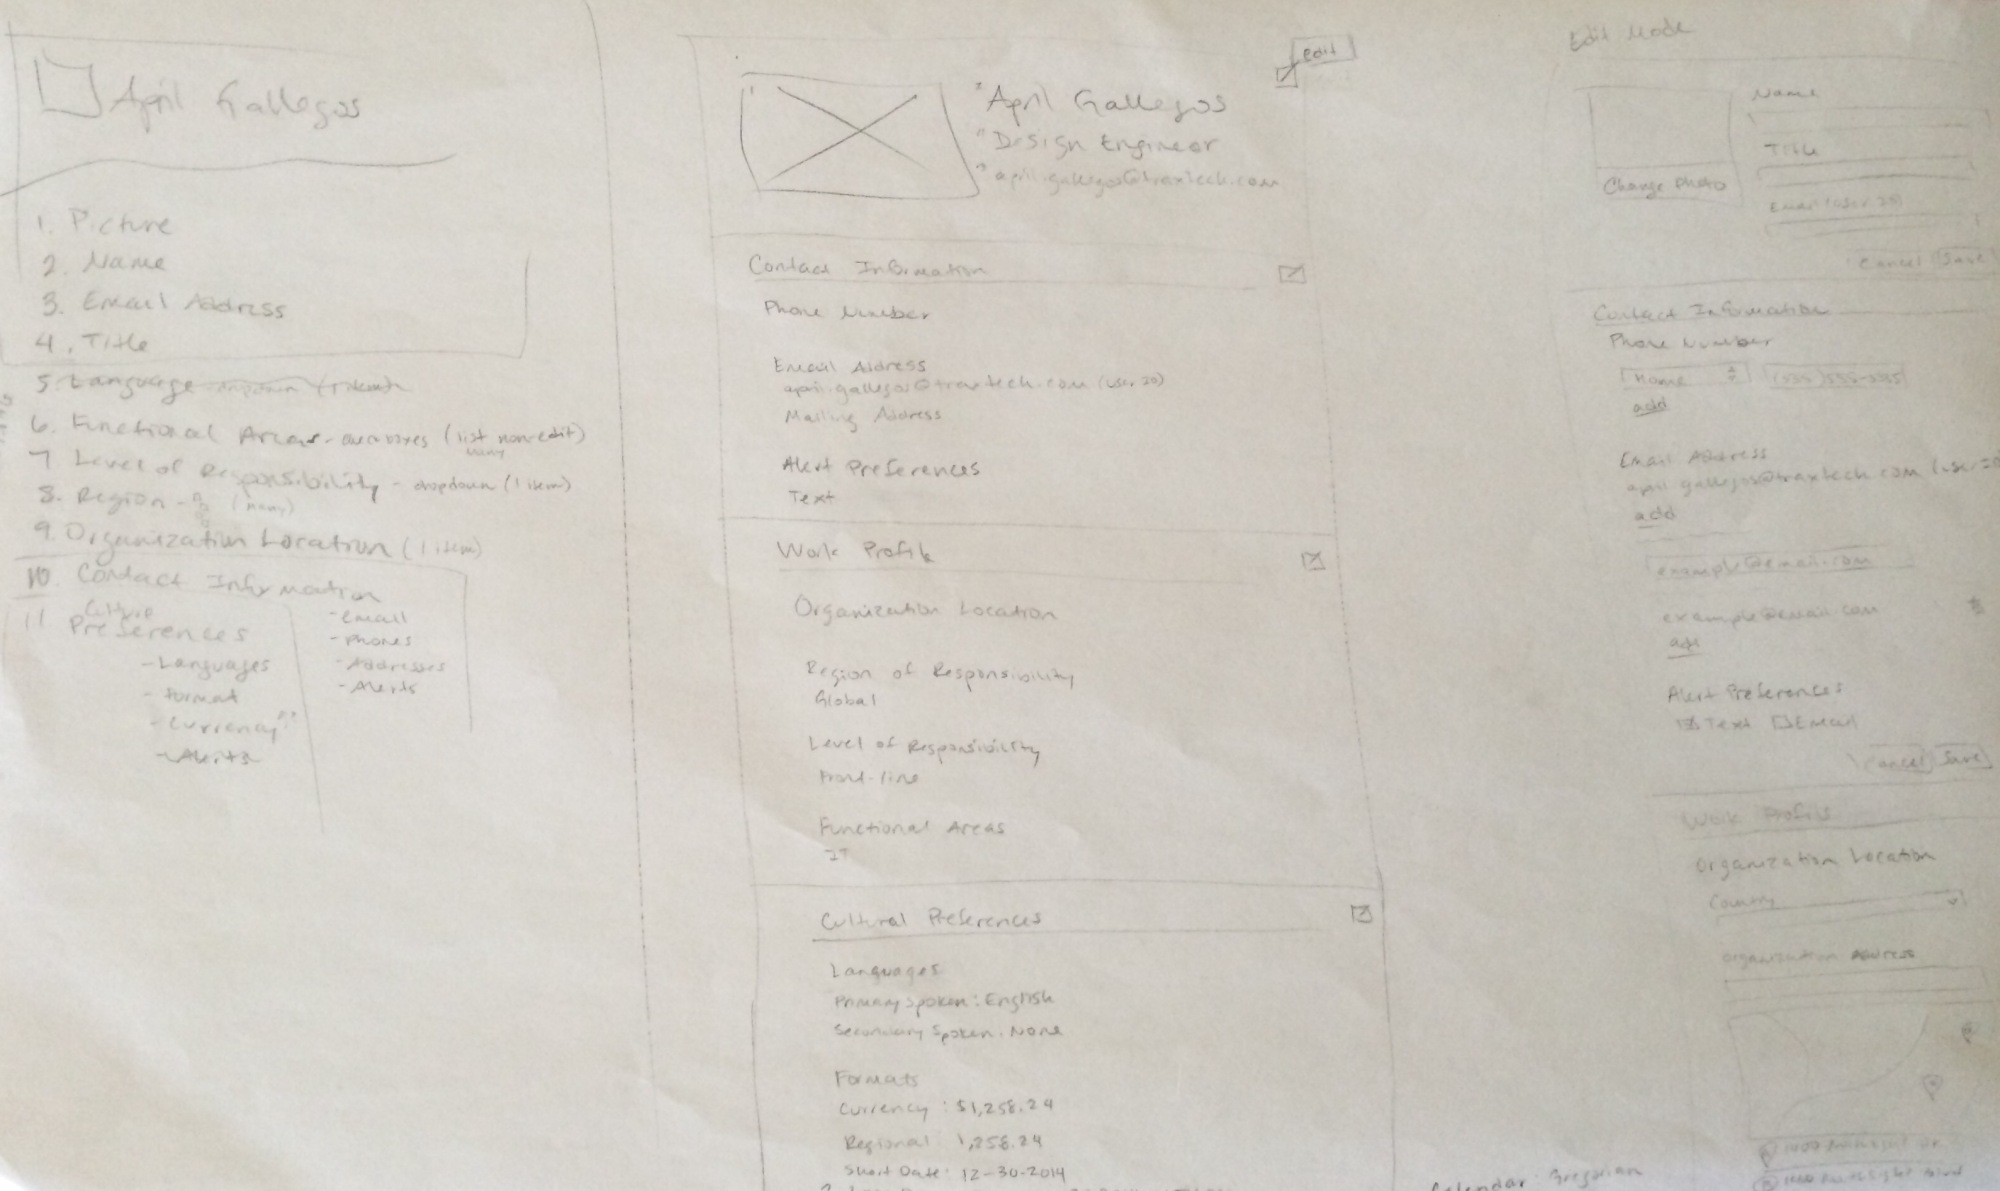 April Gallegos
1. Picture
2. Name
3. Email Address
4. Title
5. Language dropdown (1 item)
6. Functional Areas - checkboxes (list non-edit)
many
7 Level of Responsibility - dropdown (1 item)
8. Region - (many)
9. Organization Location (1 item)
10. Contact Information
- email
- phones
- Addresses
- Alerts
11 Culture
Preferences
- Languages
- format
- Currency
- Alerts
edit
April Gallegos
Design Engineer
april.gallegos@traxtech.com
Contact Information
Phone Number
Email Address
april.gallegos@traxtech.com (user ID)
Mailing Address
Alert Preferences
Text
Work Profile
Organization Location
Region of Responsibility
Global
Level of Responsibility
Front-line
Functional Areas
IT
Cultural Preferences
Languages
Primary Spoken: English
Secondary Spoken: None
Formats
Currency: $1,258.24
Regional: 1,258.24
Short Date: 12-30-2014
Edit Mode
Change Photo
Name
Title
Email (User ID)
Cancel Save
Contact Information
Phone Number
Home (555) 555-5555
add
Email Address
april.gallegos@traxtech.com (user ID
add
example@email.com
example@email.com
add
Alert Preferences
Text Email
Cancel Save
Work Profile
Organization Location
Country
Organization Address
Calendar: Gregorian